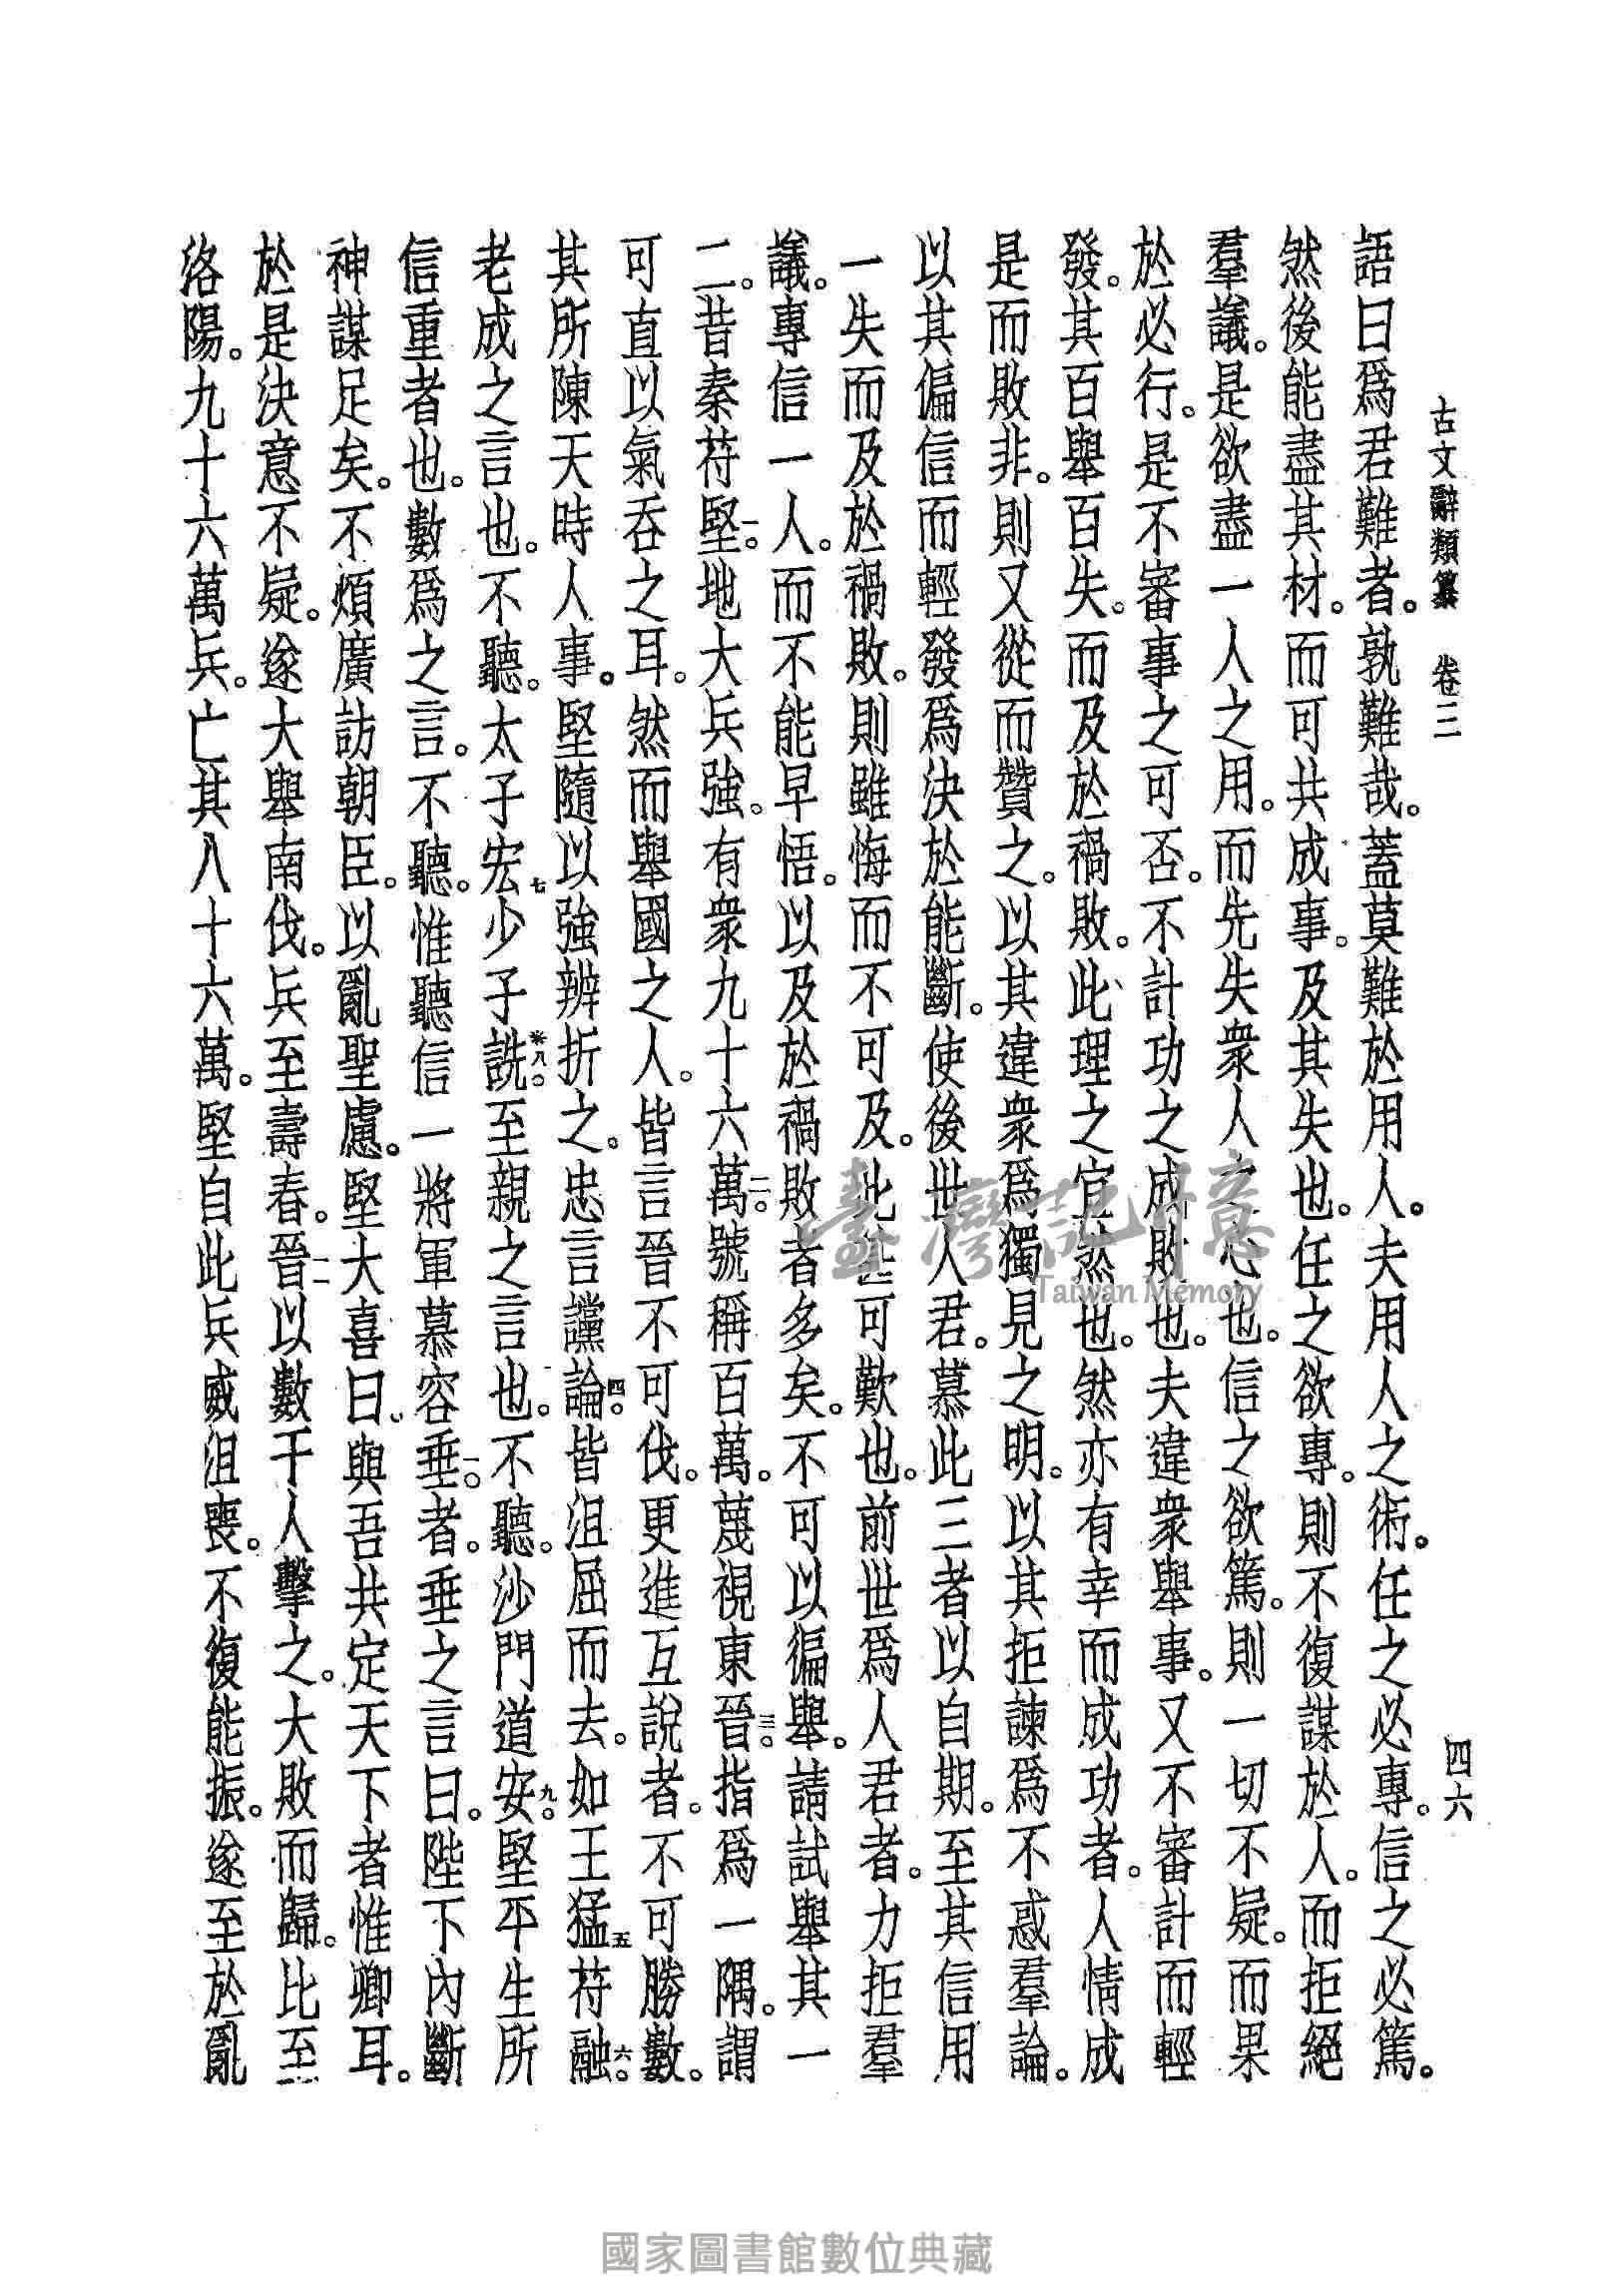 古文辭類纂 卷三 四六
語曰爲君難者。孰難哉。蓋莫難於用人。夫用人之術。任之必專。信之必篤。
然後能盡其材。而可共成事。及其失也。任之欲專。則不復謀於人。而拒絕
羣議。是欲盡一人之用。而先失衆人之心也。信之欲篤。則一切不疑。而果
於必行。是不審事之可否。不計功之成敗也。夫違衆舉事。又不審計而輕
發。其百舉百失。而及於禍敗。此理之宜然也。然亦有幸而成功者。人情成
是而敗非。則又從而贊之。以其違衆爲獨見之明。以其拒諫爲不惑羣論。
以其偏信而輕發爲決於能斷。使後世人君。慕此三者以自期。至其信用
一失而及於禍敗。則雖悔而不可及。此甚可歎也。前世爲人君者。力拒羣
議。專信一人。而不能早悟。以及於禍敗者多矣。不可以徧舉。請試舉其一
二。昔秦苻堅一。地大兵強。有衆九十六萬二。號稱百萬。蔑視東晉三。指爲一隅。謂
可直以氣吞之耳。然而舉國之人。皆言晉不可伐。更進互說者。不可勝數。
其所陳天時人事。堅隨以強辨折之。忠言讜論四。皆沮屈而去。如王猛五苻融六。
老成之言也。不聽。太子宏七少子詵※八。至親之言也。不聽。沙門道安九。堅平生所
信重者也。數爲之言。不聽。惟聽信一將軍慕容垂一〇。者。垂之言曰。陛下內斷
神謀足矣。不煩廣訪朝臣。以亂聖慮。堅大喜曰、與吾共定天下者惟卿耳。
於是決意不疑。遂大舉南伐。兵至壽春。晉一一以數千人擊之。大敗而歸。比至
洛陽。九十六萬兵。亡其八十六萬。堅自此兵威沮喪。不復能振。遂至於亂
臺灣記憶
Taiwan Memory
國家圖書館數位典藏